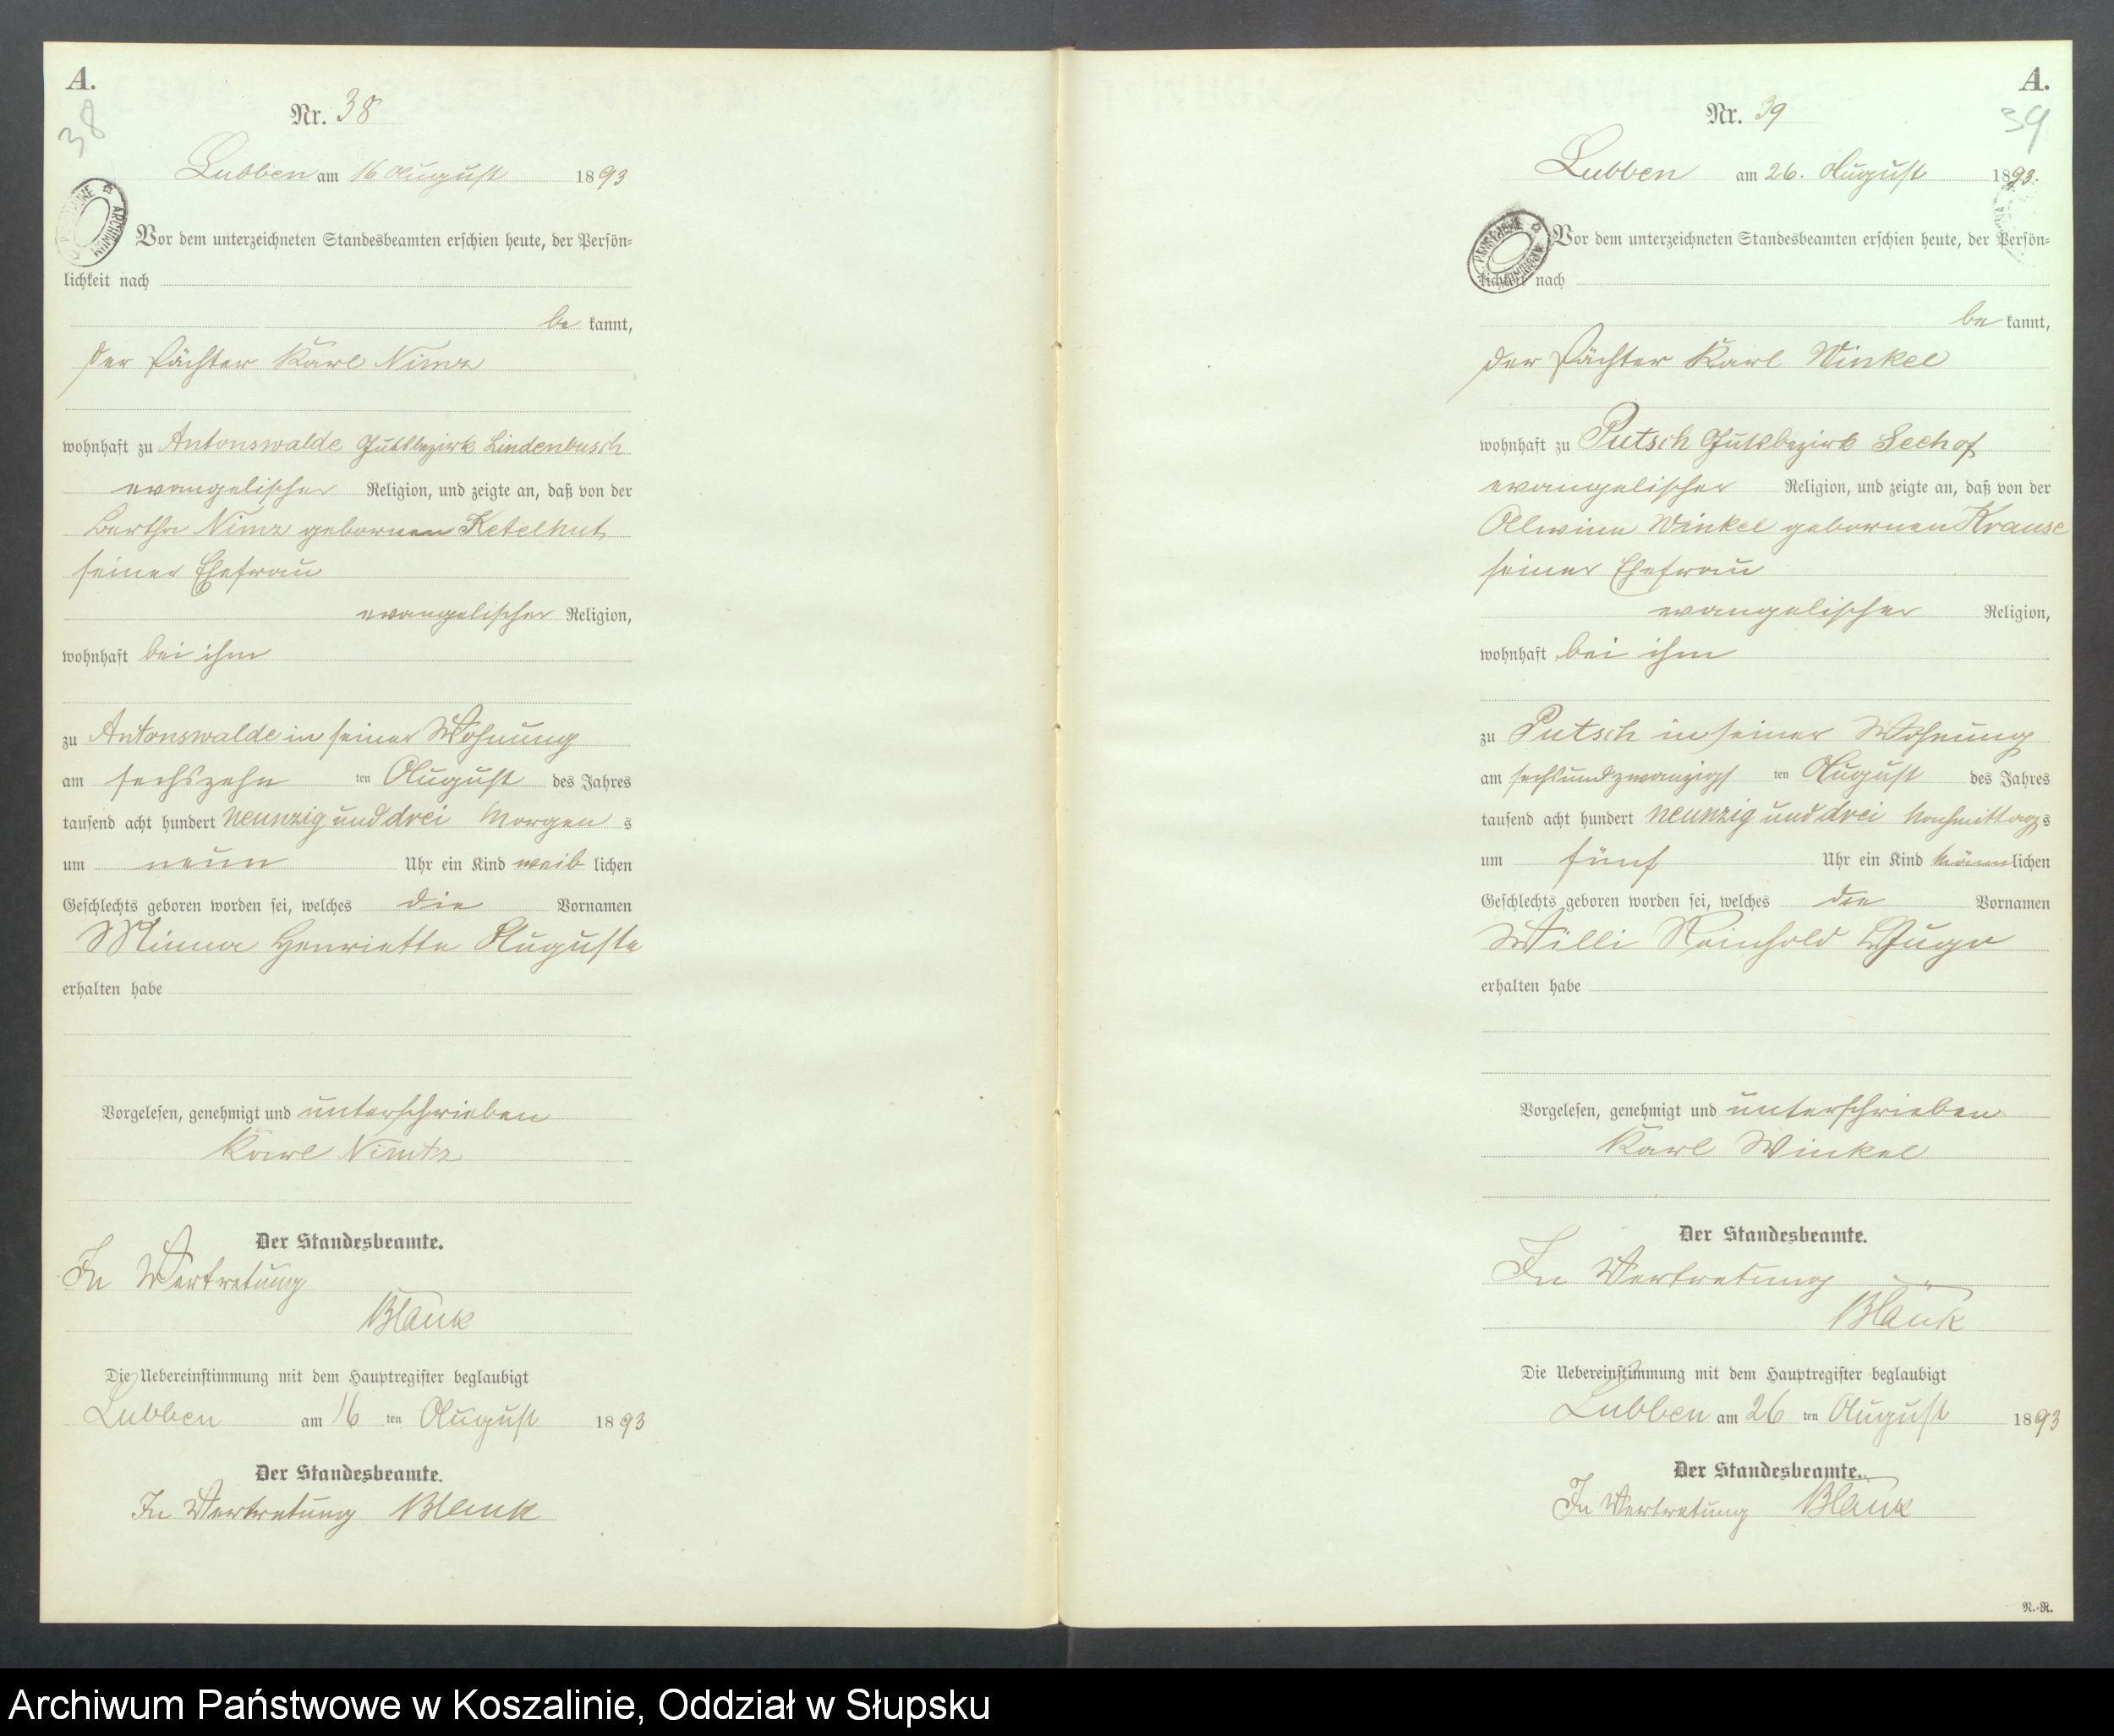 A.
38
Nr. 38
Lubben am 16 August 1893
Vor dem unterzeichneten Standesbeamten erschien heute, der Persön-
lichkeit nach
be kannt,
der Pächter Karl Nimz
wohnhaft zu Antonswalde Gutsbezirk Lindenbusch
evangelischer Religion, und zeigte an, daß von der
Bertha Nimz gebornen Ketelhut
seiner Ehefrau
evangelischer Religion,
wohnhaft bei ihm
zu Antonswalde in seiner Wohnung
am sechszehn ten August des Jahres
tausend acht hundert neunzig und drei Morgen s
um neun Uhr ein Kind weib lichen
Geschlechts geboren worden sei, welches die Vornamen
Minna Henriette Auguste
erhalten habe
Vorgelesen, genehmigt und unterschrieben
Karl Nimtz
Der Standesbeamte.
In Vertretung
Blank
Die Uebereinstimmung mit dem Hauptregister beglaubigt
Lubben am 16 ten August 1893
Der Standesbeamte.
In Vertretung Blank
A.
39
Nr. 39
Lubben am 26. August 1893.
Vor dem unterzeichneten Standesbeamten erschien heute, der Persön-
lichkeit nach
be kannt,
der Pächter Karl Winkel
wohnhaft zu Putsch Gutsbezirk Seehof
evangelischer Religion, und zeigte an, daß von der
Allwine Winkel gebornen Krause
seiner Ehefrau
evangelischer Religion,
wohnhaft bei ihm
zu Putsch in seiner Wohnung
am sechsundzwanzigs ten August des Jahres
tausend acht hundert neunzig und drei Nachmittag s
um fünf Uhr ein Kind männlichen
Geschlechts geboren worden sei, welches die Vornamen
Willi Reinhold Hugo
erhalten habe
Vorgelesen, genehmigt und unterschrieben
Karl Winkel
Der Standesbeamte.
In Vertretung
Blank
Die Uebereinstimmung mit dem Hauptregister beglaubigt
Lubben am 26 ten August 1893
Der Standesbeamte.
In Vertretung Blank
N.-R.
Archiwum Państwowe w Koszalinie, Oddział w Słupsku